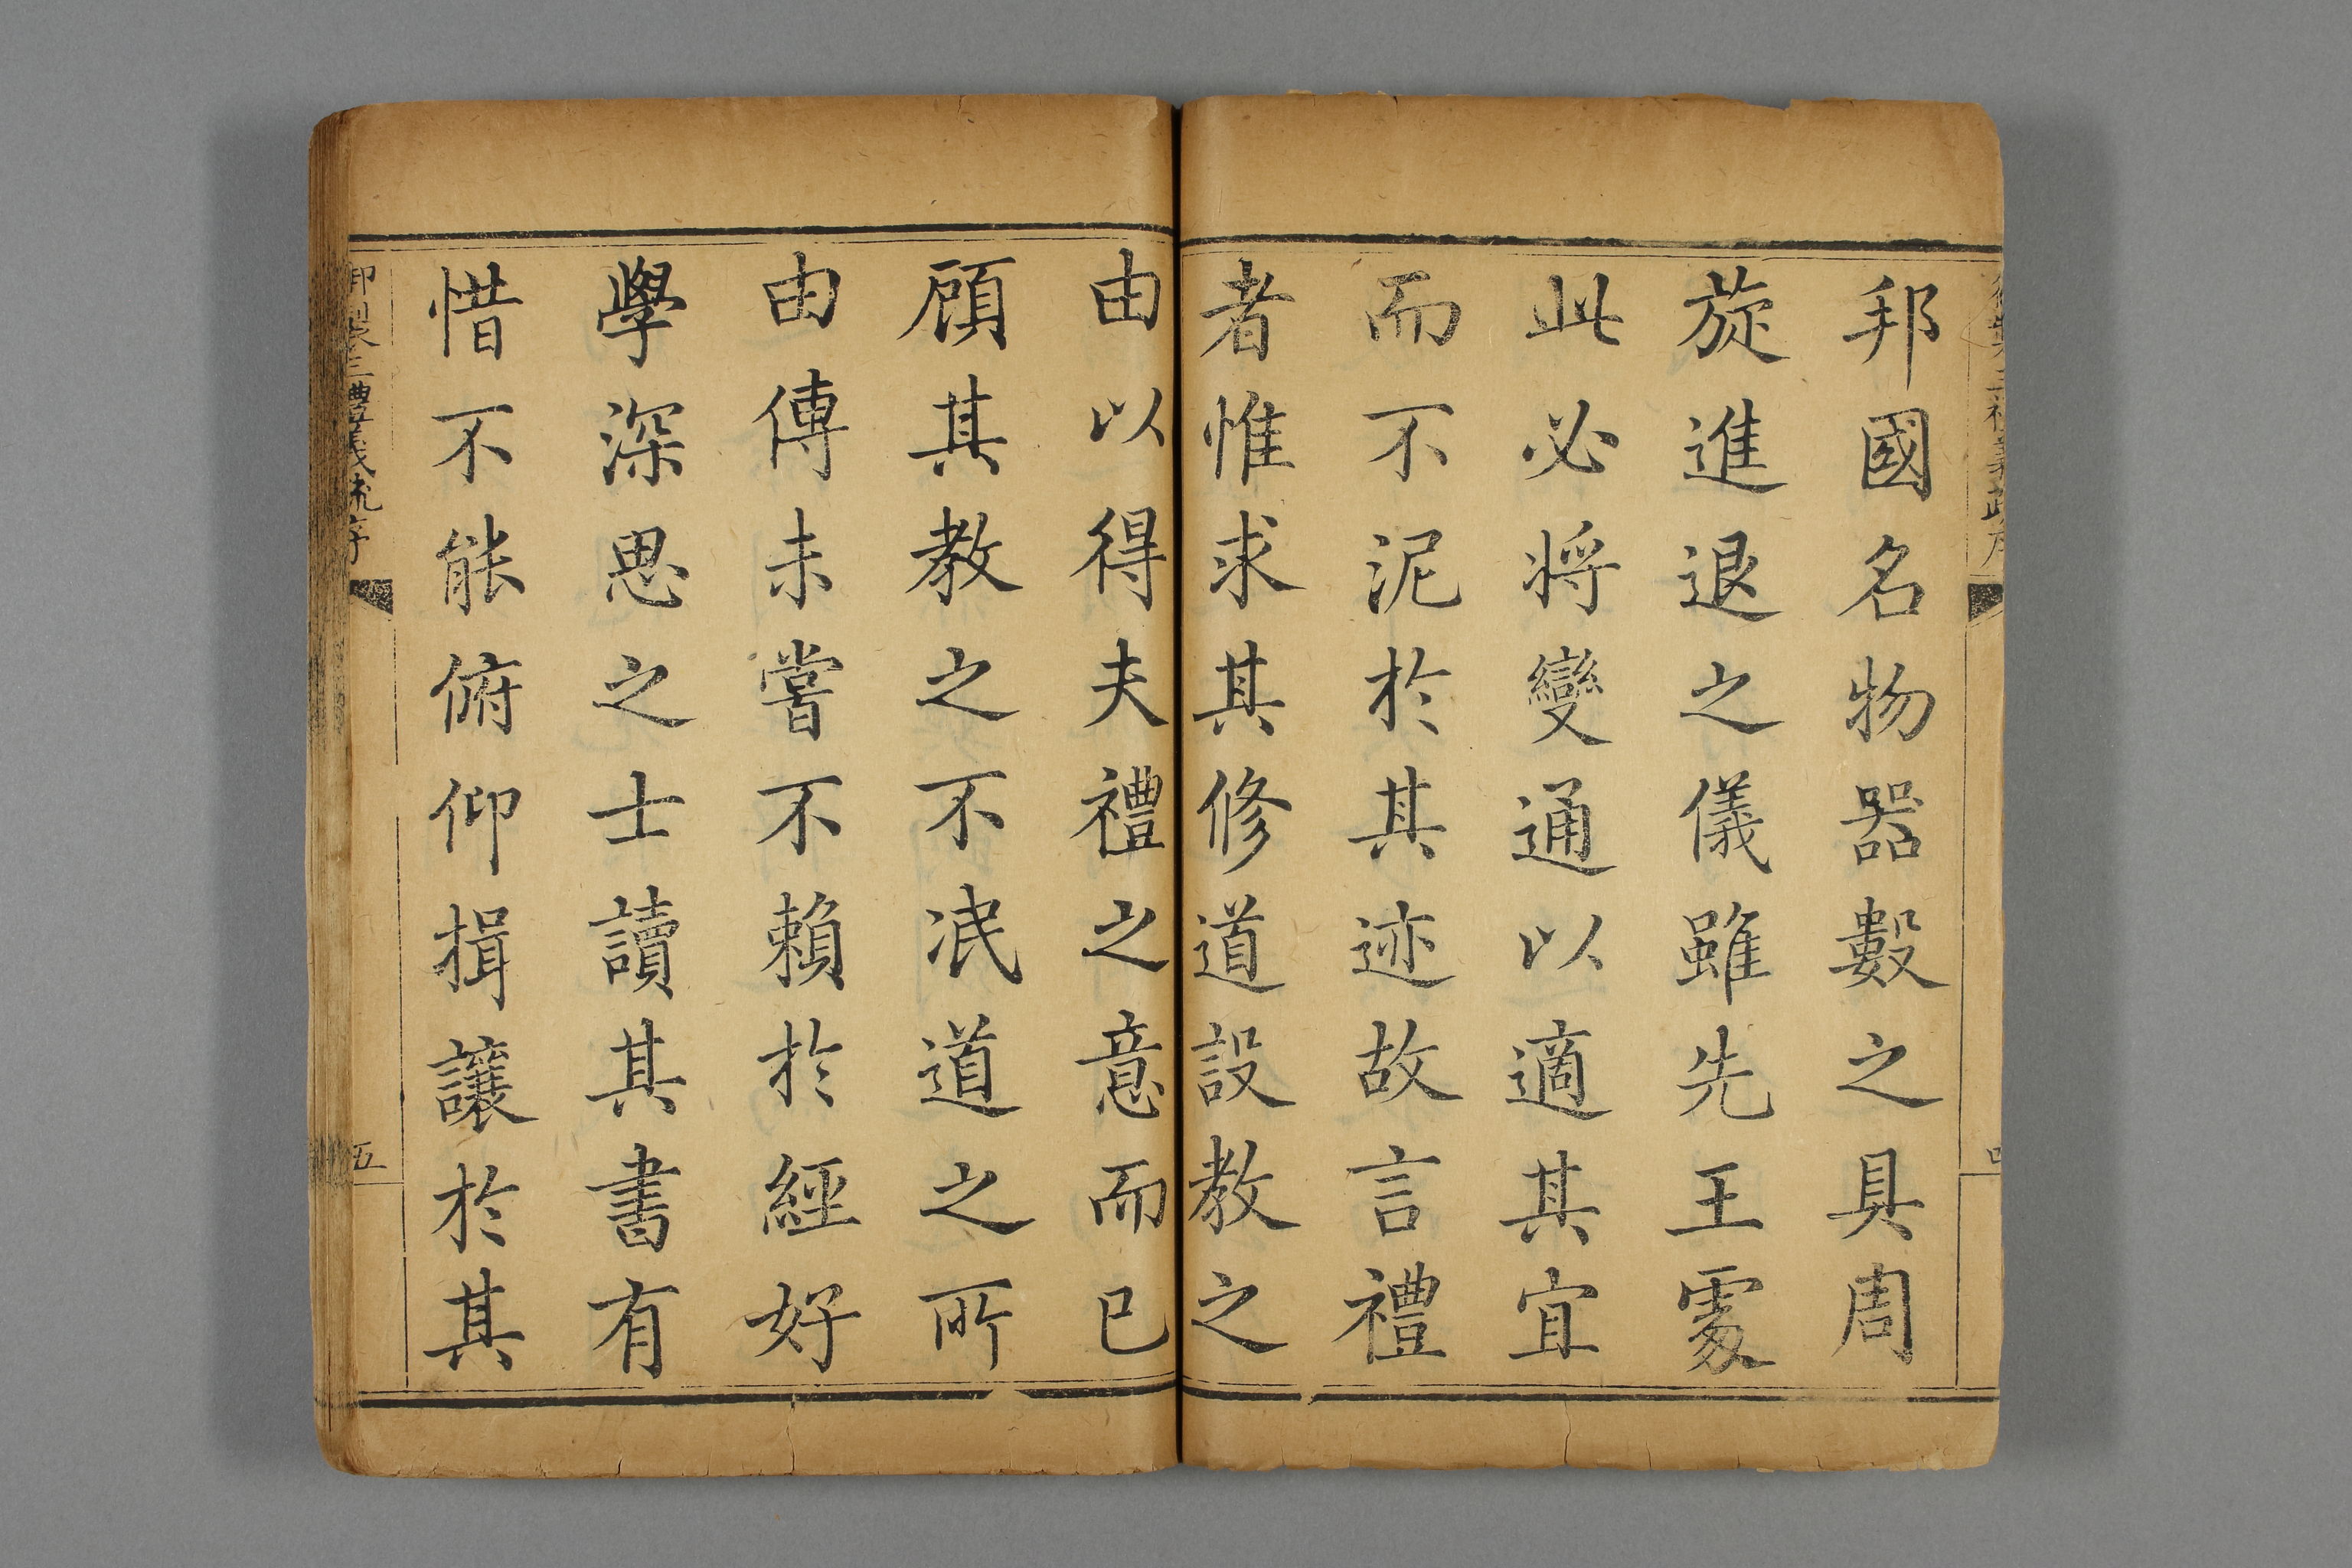 邦國名物器數之具周
旋進退之儀雖先王處
此必將變通以適其宜
而不泥於其迹故言禮
者惟求其修道設教之
由以得夫禮之意而已
顧其教之不泯道之所
由傳未嘗不賴於經好
學深思之士讀其書有
惜不能俯仰揖讓於其
御製三禮義疏序
五